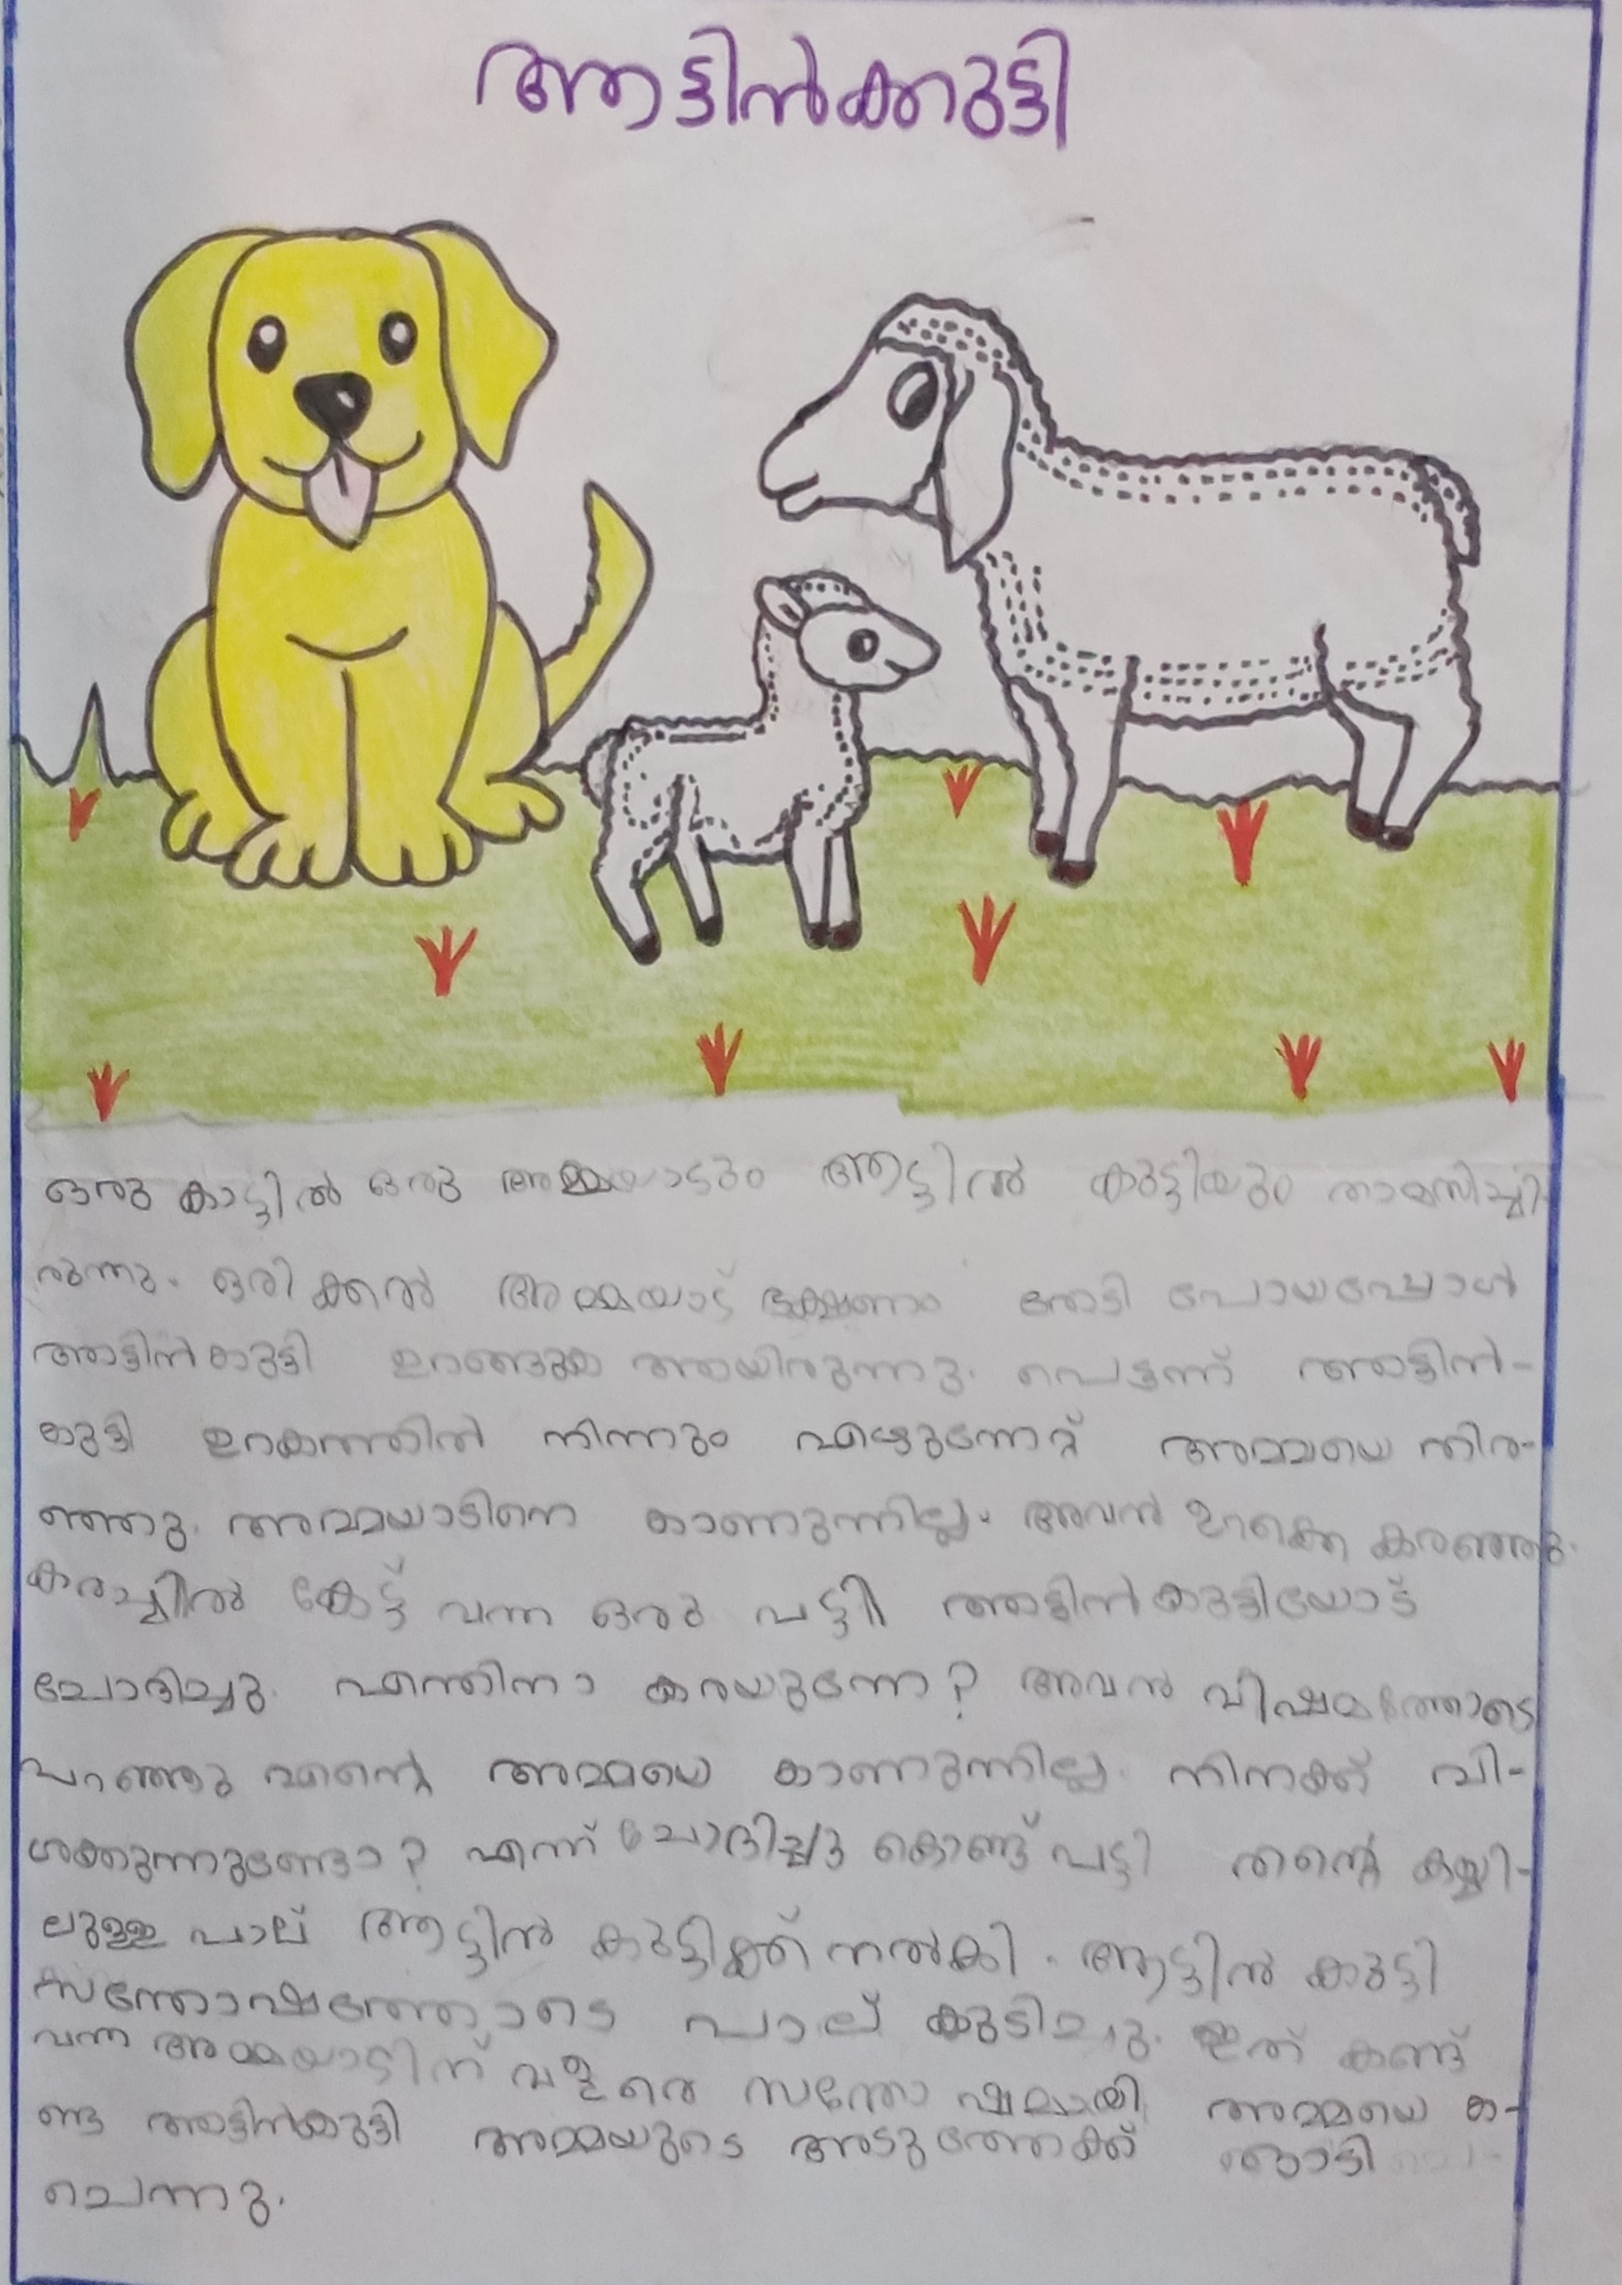 ആട്ടിൻക്കുട്ടി
ഒരു കാട്ടിൽ ഒരു അമ്മയാടും ആട്ടിൻ കുട്ടിയും താമസിച്ചി-
രുന്നു. ഒരിക്കൽ അമ്മയാട് ഭക്ഷണം തേടി പോയപ്പോൾ
ആട്ടിൻകുട്ടി ഉറങ്ങുക ആയിരുന്നു. പെട്ടന്ന് ആട്ടിൻ-
കുട്ടി ഉറക്കത്തിൽ നിന്നും എഴുന്നേറ്റ് അമ്മയെ തിര-
ഞ്ഞു. അമ്മയാടിനെ കാണുന്നില്ല. അവൻ ഉറക്കെ കരഞ്ഞു.
കരച്ചിൽ കേട്ട് വന്ന ഒരു പട്ടി ആട്ടിൻകുട്ടിയോട്
ചോദിച്ചു. എന്തിനാ കരയുന്നേ? അവൻ വിഷമത്തോടെ
പറഞ്ഞു എന്റെ അമ്മയെ കാണുന്നില്ല. നിനക്ക് വി-
ശക്കുന്നുണ്ടോ? എന്ന് ചോദിച്ചു കൊണ്ട് പട്ടി തന്റെ കയ്യി-
ലുള്ള പാല് ആട്ടിൻ കുട്ടിക്ക് നൽകി. ആട്ടിൻ കുട്ടി
സന്തോഷത്തോടെ പാല് കുടിച്ചു. ഇത് കണ്ട്
വന്ന അമ്മയാടിന് വളരെ സന്തോഷമായി അമ്മയെ ക-
ണ്ട ആട്ടിൻകുട്ടി അമ്മയുടെ അടുത്തേക്ക് ഓടി
ചെന്നു.